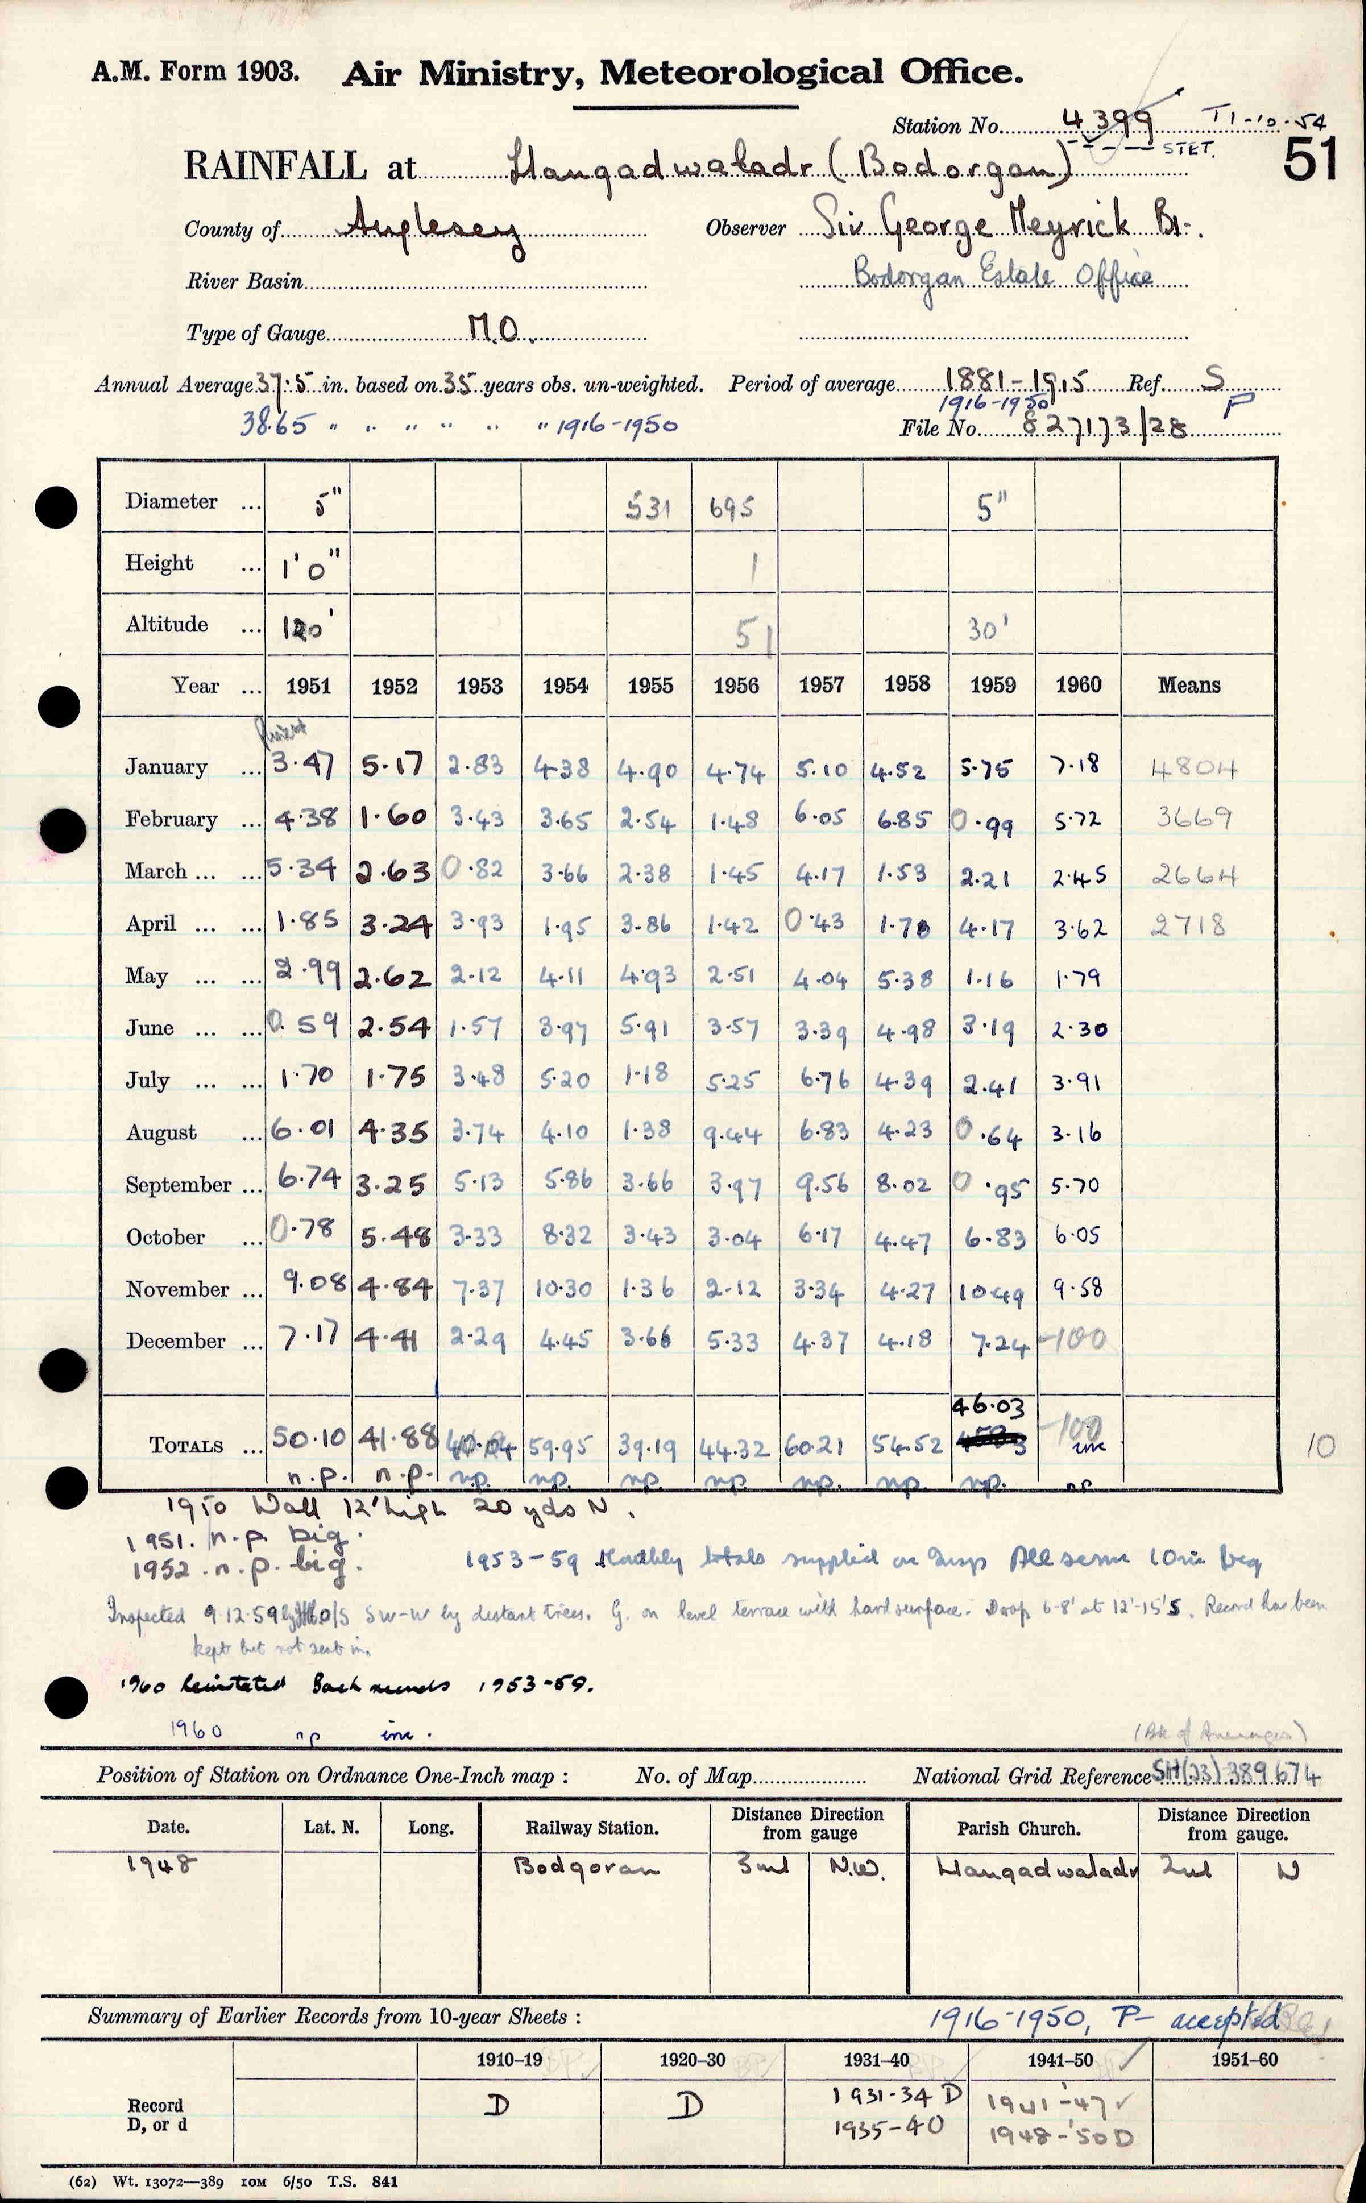 A.M. Form 1903. Air Ministry, Meteorological Office.
Station No. 4399 T1-10-54
STET.
51
RAINFALL at Llangadwaladr (Bodorgan)
County of Anglesey Observer Sir George Meyrick Bt.
River Basin Bodorgan Estate Office
Type of Gauge M.O.
Annual Average 37.5 in. based on 35 years obs. un-weighted. Period of average 1881-1915 Ref. S
1916-1950 P
38.65 " " " " " " 1916-1950 File No. 827173/28
Diameter ... 5" 531 695 5"
Height ... 1'0" 1
Altitude ... 120' 51 30'
Year ... 1951 1952 1953 1954 1955 1956 1957 1958 1959 1960 Means
January ... 3.47 5.17 2.83 4.38 4.90 4.74 5.10 4.52 5.75 7.18 4804
February ... 4.38 1.60 3.43 3.65 2.54 1.48 6.05 6.85 0.99 5.72 3669
March ... ... 5.34 2.63 0.82 3.66 2.38 1.45 4.17 1.53 2.21 2.45 2664
April ... ... 1.85 3.24 3.93 1.95 3.86 1.42 0.43 1.70 4.17 3.62 2718
May ... ... 2.99 2.62 2.12 4.11 4.93 2.51 4.04 5.38 1.16 1.79
June ... ... 0.59 2.54 1.57 3.97 5.91 3.57 3.39 4.98 3.19 2.30
July ... ... 1.70 1.75 3.48 5.20 1.18 5.25 6.76 4.39 2.41 3.91
August ... 6.01 4.35 3.74 4.10 1.38 9.44 6.83 4.23 0.64 3.16
September ... 6.74 3.25 5.13 5.86 3.66 3.97 9.56 8.02 0.95 5.70
October ... 0.78 5.48 3.33 8.32 3.43 3.04 6.17 4.47 6.83 6.05
November ... 9.08 4.84 7.37 10.30 1.36 2.12 3.34 4.27 10.49 9.58
December ... 7.17 4.41 2.29 4.45 3.66 5.33 4.37 4.18 7.24 -100
46.03
TOTALS ... 50.10 41.88 40.04 59.95 39.19 44.32 60.21 54.52 -100 inc 10
n.p. n.p. n.p. n.p. n.p. n.p. n.p. n.p. n.p. n.p
1950 Wall 12' high 20 yds N.
1951. n.p. big.
1952. n.p. big. 1953-59 Monthly totals supplied on Insp All same 10in big
Inspected 9.12.59 by O/S SW-W by distant trees. G. on level terrace with hard surface. Drop 6-8' at 12'-15' S. Record has been
kept but not sent in.
1960 Reinstated Back records 1953-59.
1960 np inc.
(Bk of Averages)
Position of Station on Ordnance One-Inch map : No. of Map National Grid Reference SH(23)389674
Date. Lat. N. Long. Railway Station. Distance Direction from gauge Parish Church. Distance Direction from gauge.
1948 Bodgoran 3ml N.W. Llangadwaladr 2ml N
Summary of Earlier Records from 10-year Sheets : 1916-1950, P- accepted
1910-19 1920-30 1931-40 1941-50 1951-60
Record D, or d D D 1931-34 D 1941-'47 ✓
1935-40 1948-'50 D
(62) Wt. 13072—389 IOM 6/50 T.S. 841